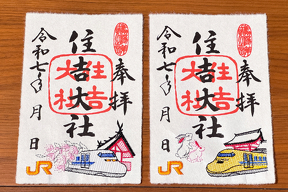 奉拝
住吉大社
住吉
大社
令和七年 月 日
JR
奉拝
住吉大社
住吉
大社
令和七年 月 日
JR